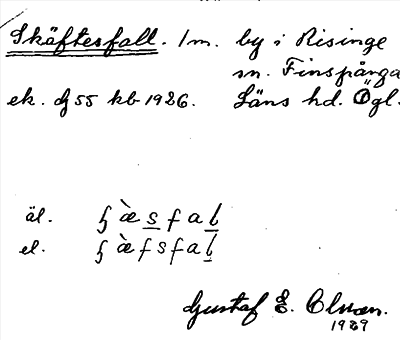 Skäftesfall. 1 m. by i Risinge
sn. Finspånga
ek. dj 55 kb 1926. Läns hd. Ögl.
äl. ꞩ̀æsfal
el. ꞩæ̀fsfal
Gustaf E. Olsson.
1929